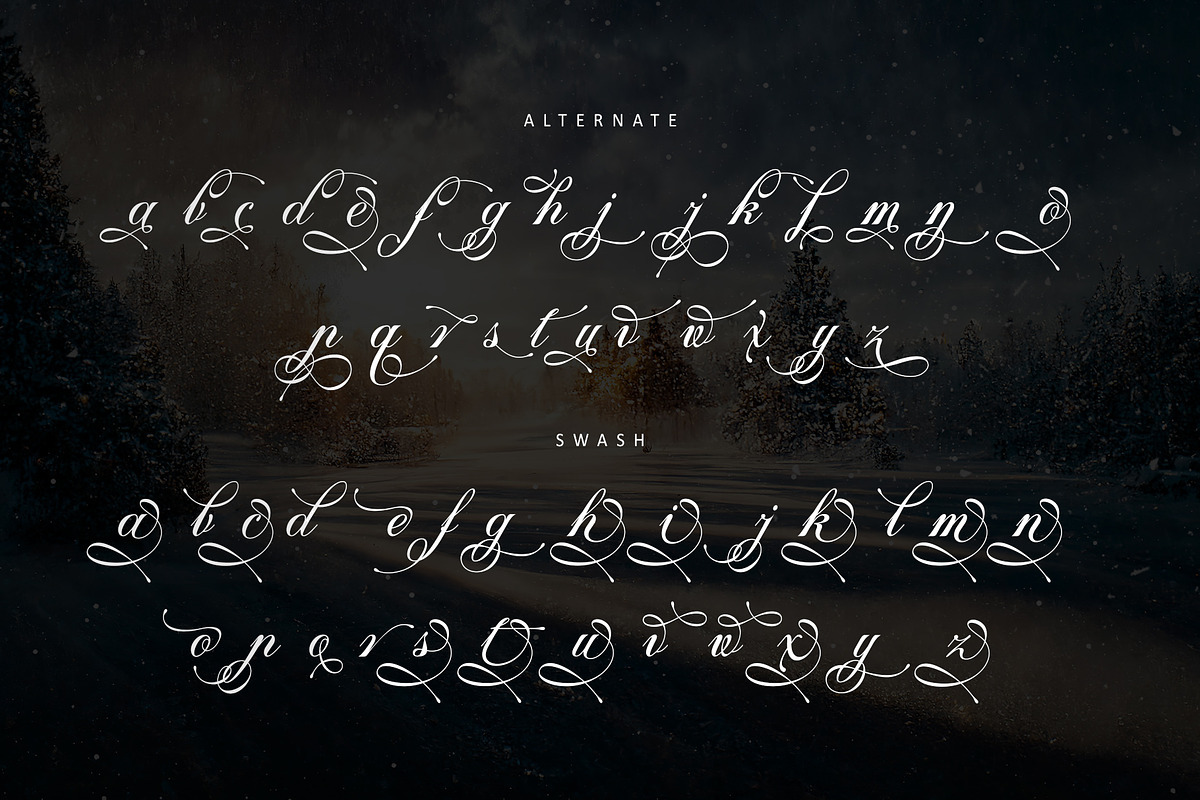 ALTERNATE
a b c d e f g h i j k l m n o
p q r s t u v w x y z
SWASH
a b c d e f g h i j k l m n
o p q r s t u v w x y z